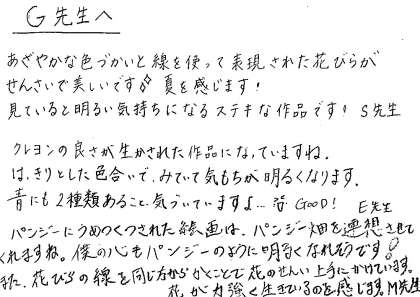 G先生へ
あざやかな色づかいと線を使って表現された花びらが
せんさいで美しいです 夏を感じます!
見ていると明るい気持ちになるステキな作品です! S先生
クレヨンの良さが生かされた作品になっていますね。
はっきりとした色合いで、みていて気もちが明るくなります。
青にも2種類あること、気づいていますよ… GOOD! E先生
パンジーにうめつくつされた絵画は、パンジー畑を連想させて
くれますね。僕の心もパンジーのように明るくなれそうです!
また、花びらの線を同じ方からかくことで花のせんい上手にかけています。
花が力強く生きているのを感じます。M先生